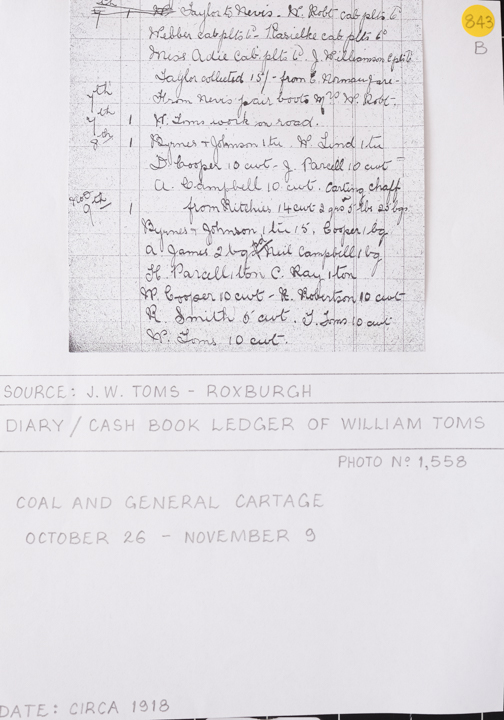 843
B
7 1 Taylor to Nevis. W. Robt cab plts 6ᵈ
Webber cab plts 6ᵈ cab plts 6ᵈ
Miss Adie Cab plts 6ᵈ. J. Williamson
Taylor collected 15/- from C. Norman fare.
From Nevis pair boots Mrs W. Robt.
7th 1 W. Toms work on road.
8 1 Byrnes & Johnson 1 tn W. Lind 1 tn
D. Cooper 10 cwt - J. Parcell 10 cwt
A. Campbell 10 cwt. Carting chaff
Nov 9th 1 from Ritchies 14 cwt 2 qrs 5 lbs 25 bgs
Byrnes & Johnson 1 tn 15. Cooper 1 bg
A. James 2 bg Neil Campbell 1 bg
H. Parcell 1 ton C. Ray 1 ton
W. Cooper 10 cwt - R. Robertson 10 cwt
R. Smith 5 cwt. T. Toms 10 cwt
W. Toms 10 cwt.
SOURCE: J.W. TOMS - ROXBURGH
DIARY / CASH BOOK LEDGER OF WILLIAM TOMS
PHOTO Nº 1,558
COAL AND GENERAL CARTAGE
OCTOBER 26 - NOVEMBER 9
DATE: CIRCA 1918